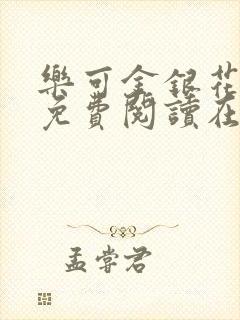 樂可金銀花
免費閱讀在
孟嘗君